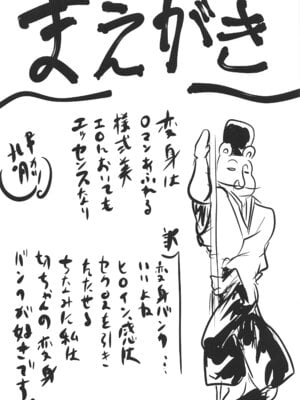 まえがき
変身は
ロマンあふれる
様式美
エロにおいても
エッセンスなり
訳
変身バンク…
いいよね
ヒロイン感は
セクロスを引き
たたせる
ちなみに私は
切ちゃんの変身
バンクが好きです。